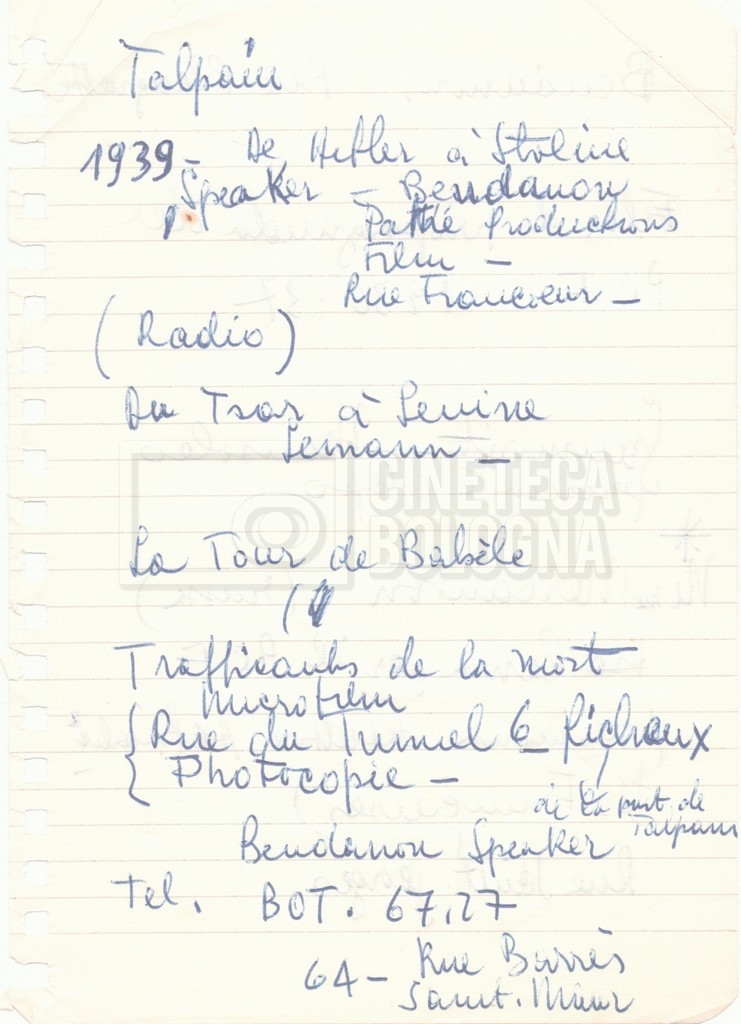 Talpain
1939 - De Hitler à Staline
Speaker - Bendanon
Pathé Productions
Film -
Rue Francoeur -
(Radio)
Du Tsar à Lenine
Lemann -
CINETECA
BOLOGNA
La Tour de Babèle
(
Trafficants de la mort
Microfilm
Rue du Tunnel 6 - Richoux
Photocopie -
de la part de
Talpain
Bendanon Speaker
tel. BOT. 67.27
64 - Rue Barrès
Saint-Maur